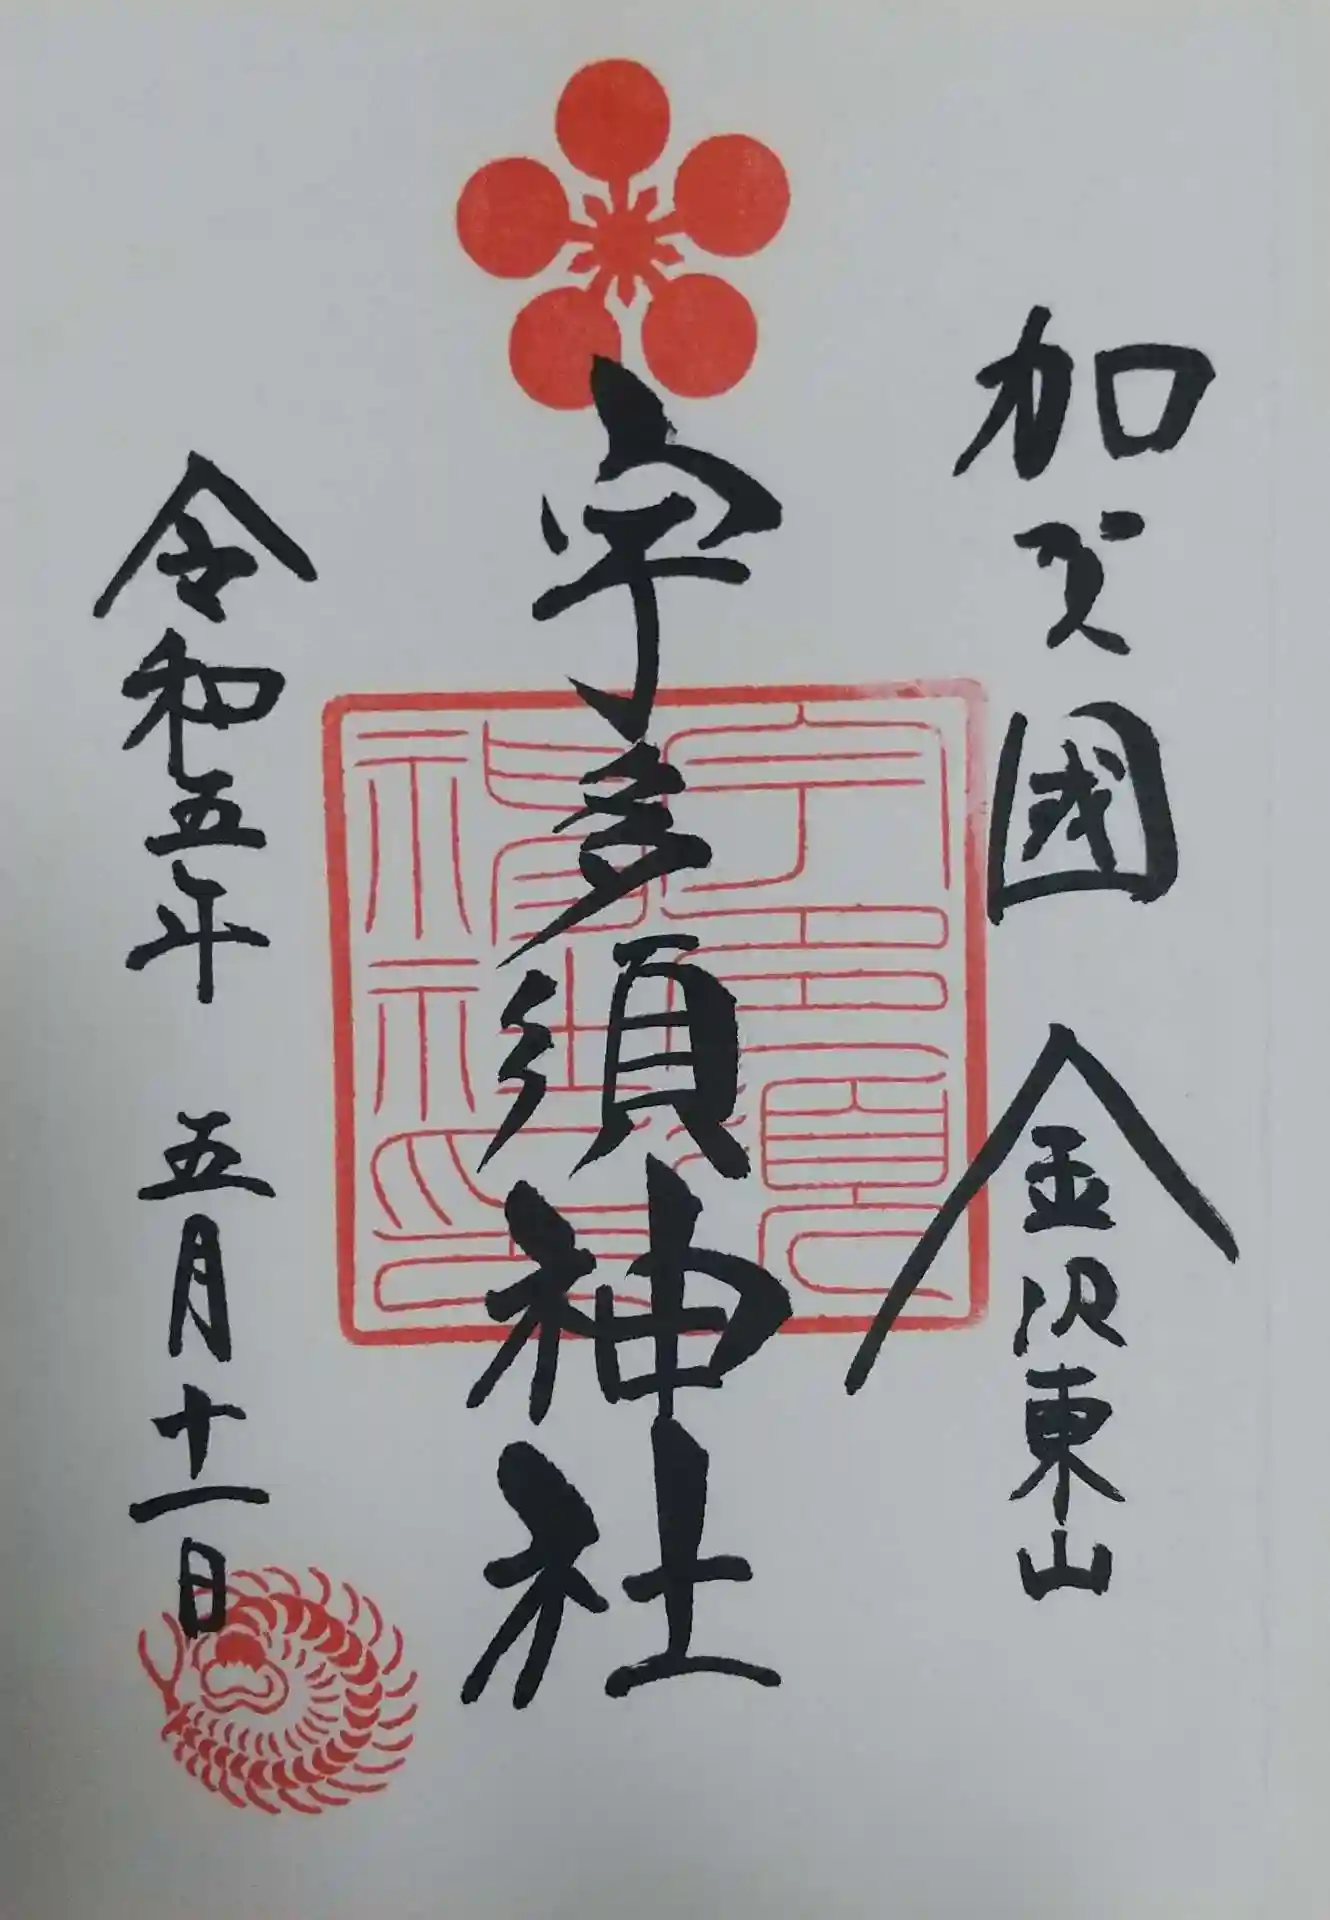 加賀國 金沢東山
宇多須神社
令和五年 五月十一日
宇多須
神社印